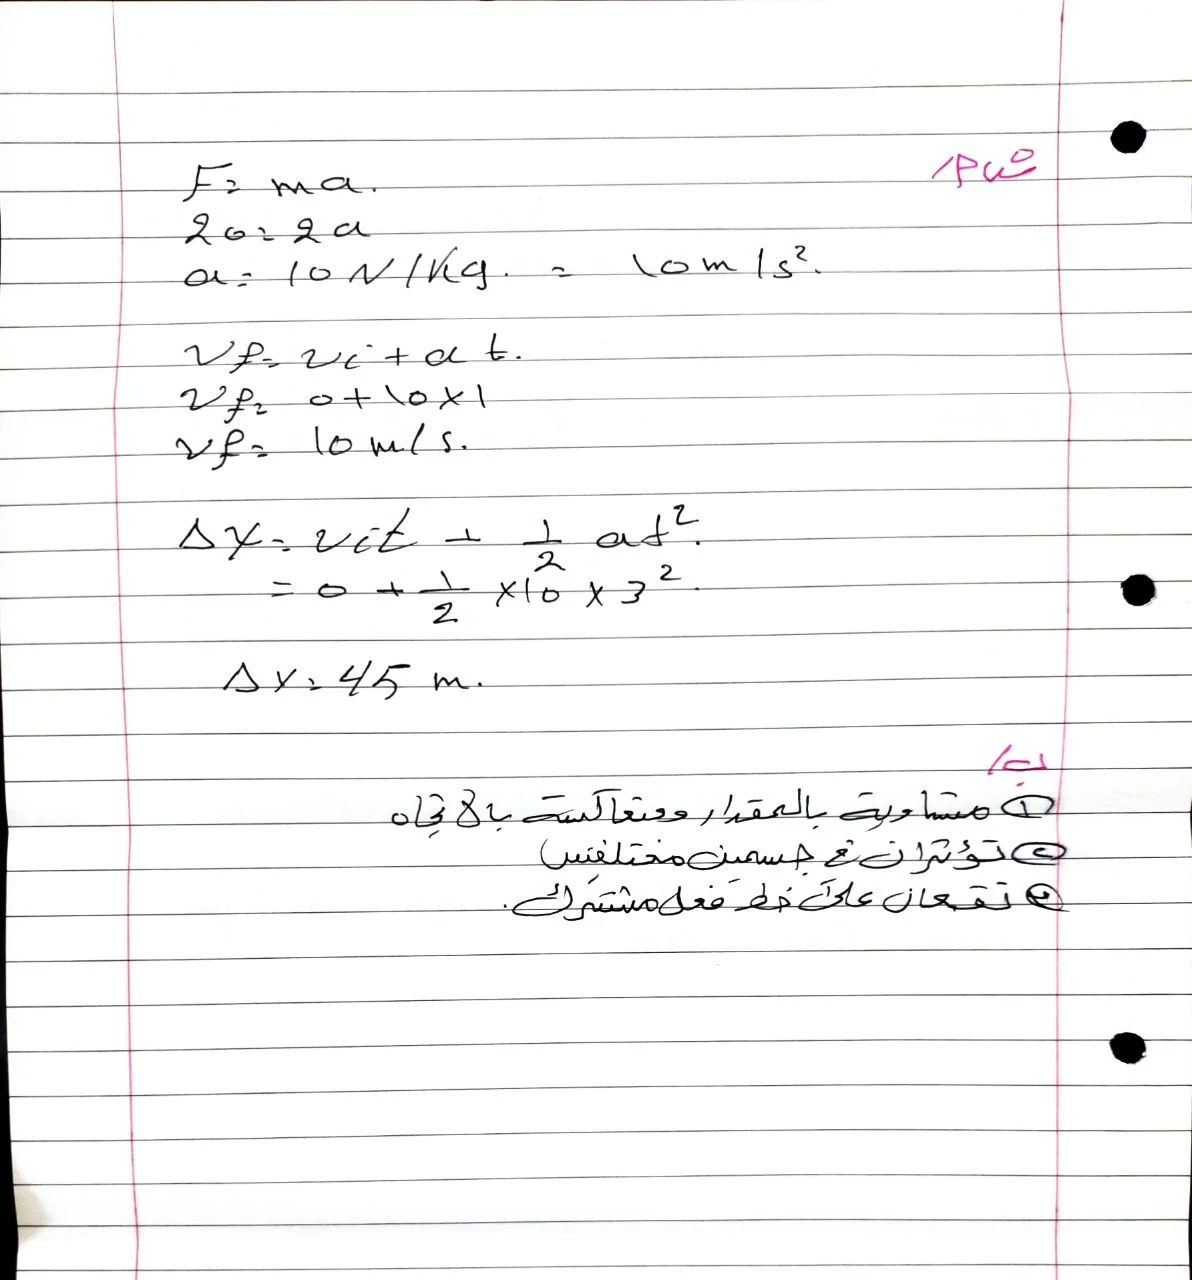 س٥ P/
F = ma.
20 = 2a
a = 10 N/Kg. = 10 m/s².
vf = vi + at.
vf = 0 + 10 × 1
vf = 10 m/s.
Δx = vit + 1/2 at².
= 0 + 1/2 × 10 × 3².
Δx = 45 m.
ب/
① متساوية بالمقدار ومتعاكسة بالاتجاه
② تؤثران في جسمين مختلفين
③ تقعان على خط فعل مشترك.